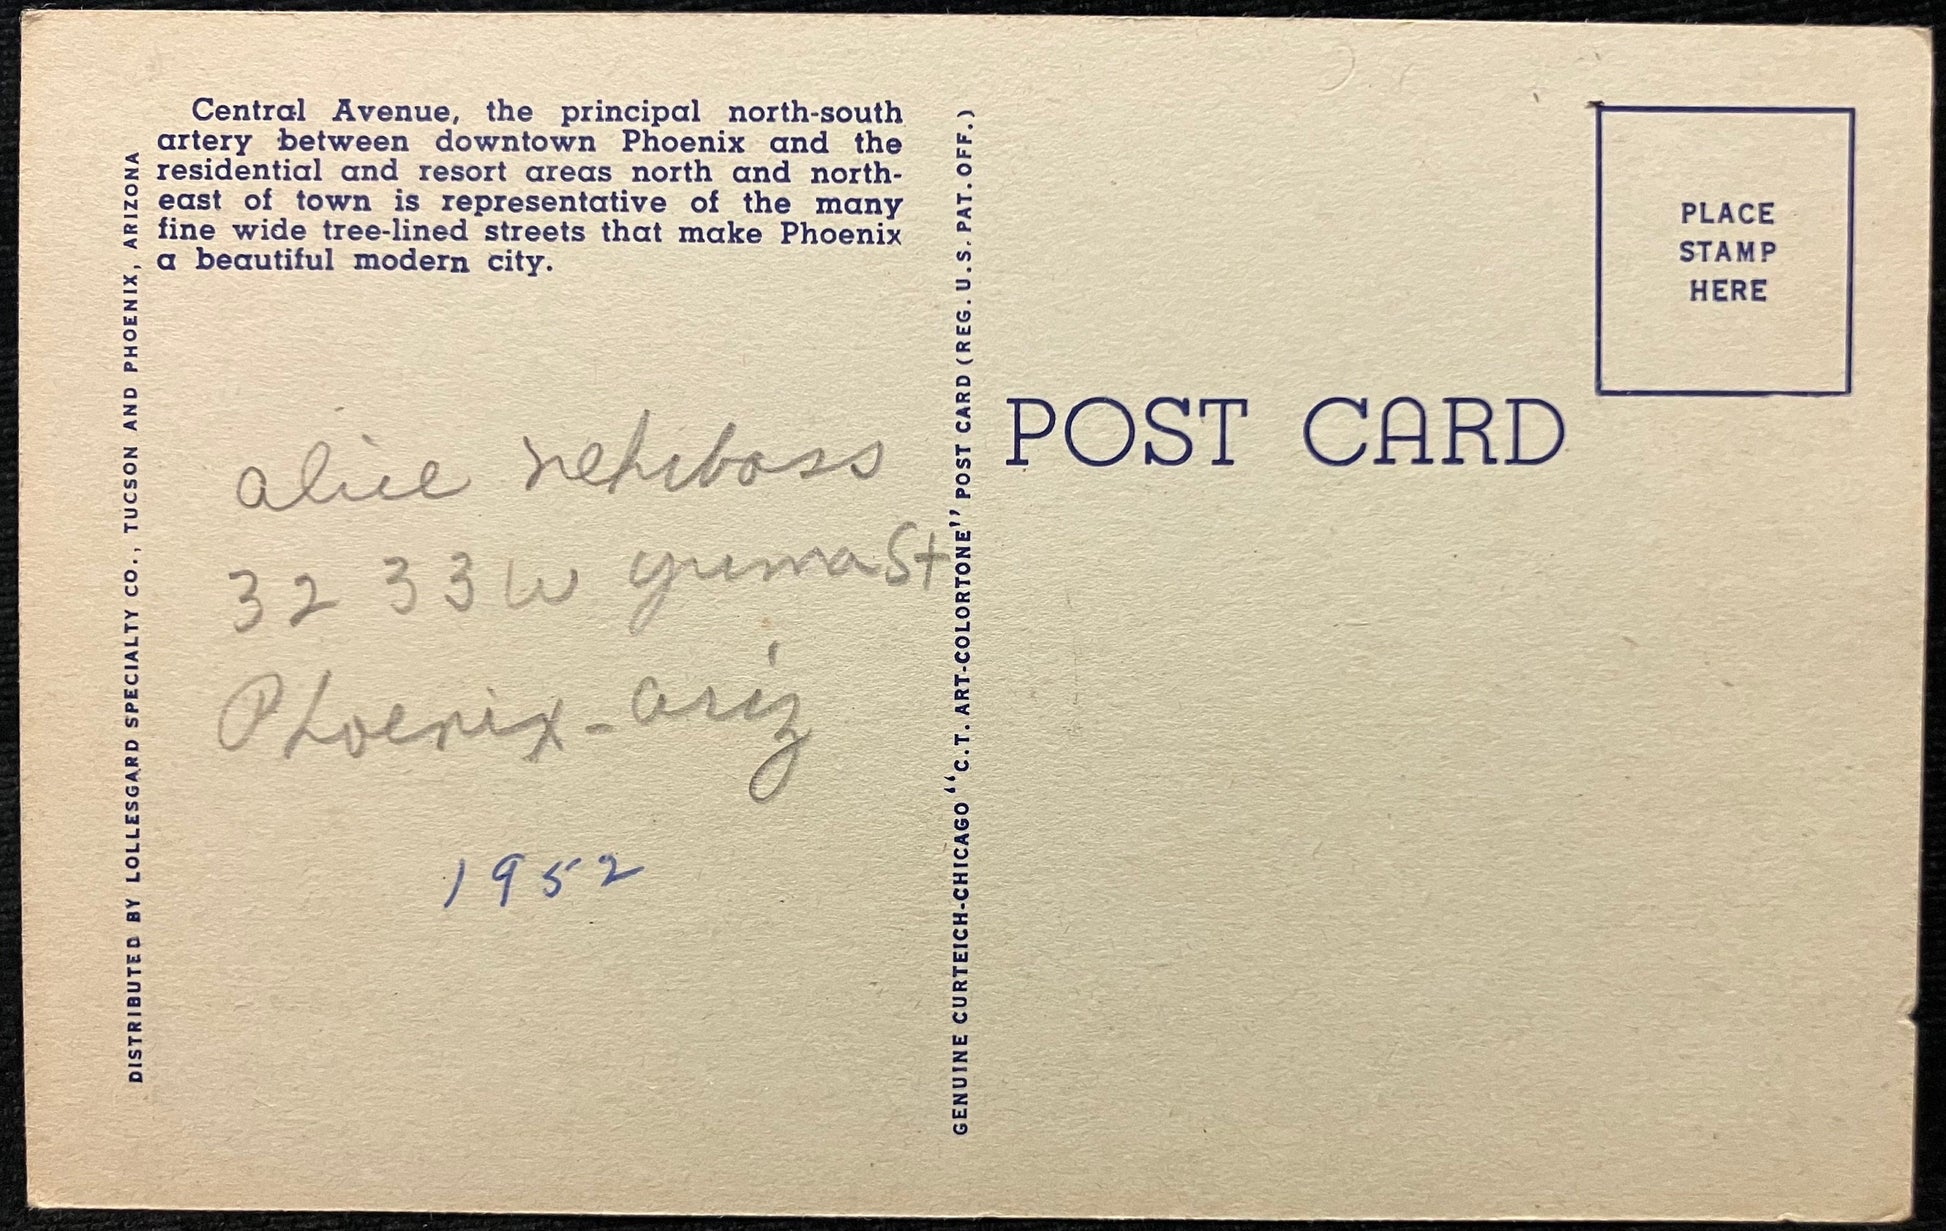 Central Avenue, the principal north-south
artery between downtown Phoenix and the
residential and resort areas north and north-
east of town is representative of the many
fine wide tree-lined streets that make Phoenix
a beautiful modern city.
DISTRIBUTED BY LOLLESGARD SPECIALTY CO., TUCSON AND PHOENIX, ARIZONA
alice
32 33 W yuma St
Phoenix - ariz
1952
GENUINE CURTEICH-CHICAGO "C.T. ART-COLORTONE" POST CARD (REG. U.S. PAT. OFF.)
POST CARD
PLACE
STAMP
HERE